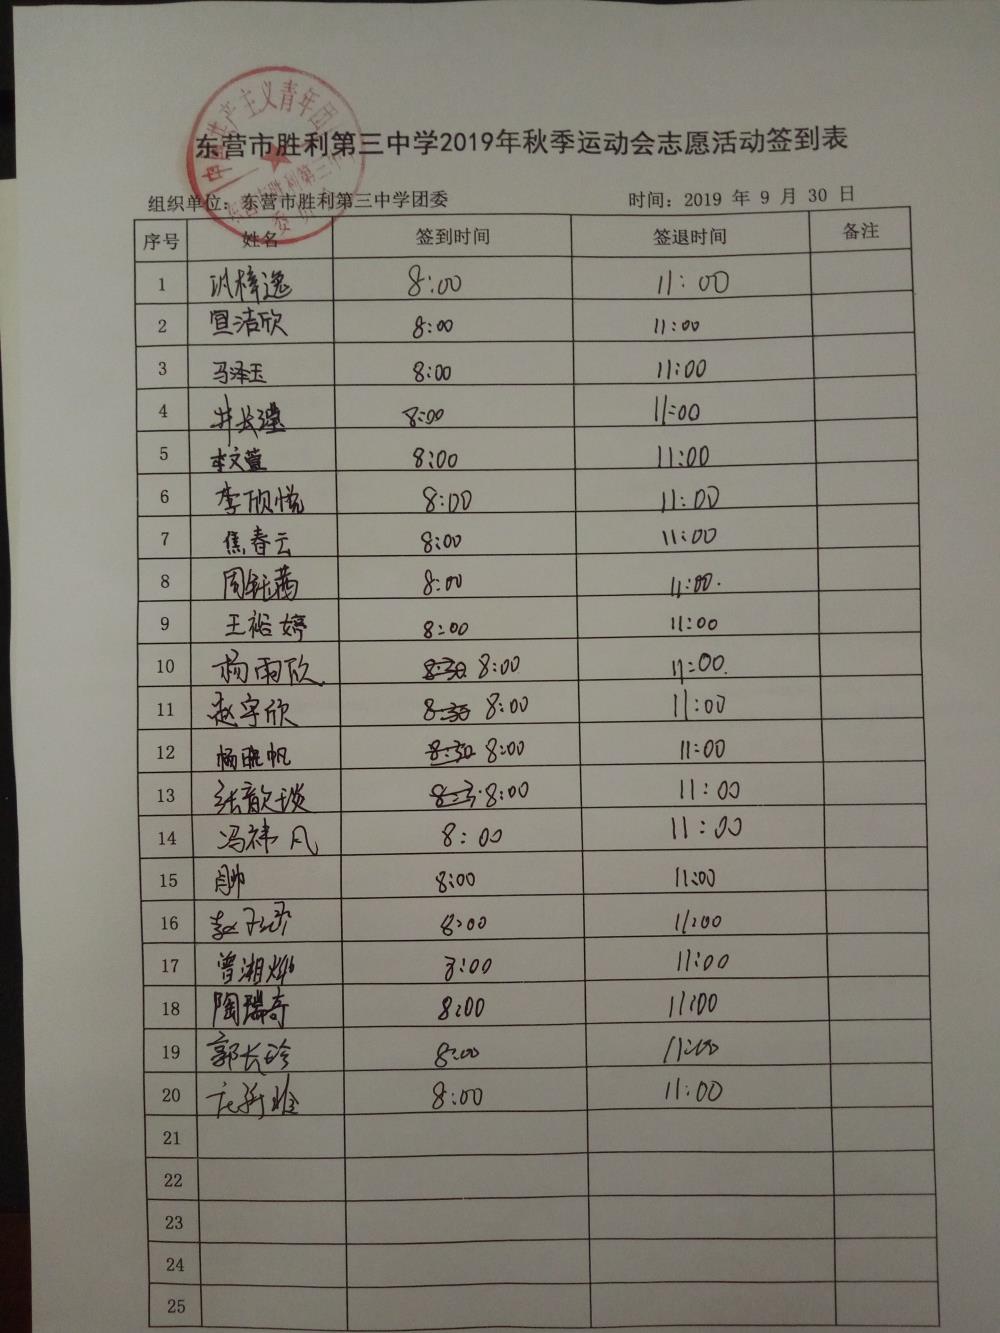 东营市胜利第三中学2019年秋季运动会志愿活动签到表
组织单位：东营市胜利第三中学团委 时间：2019 年 9 月 30 日
序号 姓名 签到时间 签退时间 备注
1 梓逸 8:00 11:00
2 宣洁欣 8:00 11:00
3 马泽玉 8:00 11:00
4 井长滢 8:00 11:00
5 李文萱 8:00 11:00
6 李欣悦 8:00 11:00
7 焦春云 8:00 11:00
8 周钰茜 8:00 11:00.
9 王裕婷 8:00 11:00
10 杨雨欣 8:30 8:00 11:00.
11 赵宇欣 8:30 8:00 11:00
12 杨晓帆 8:30 8:00 11:00
13 张歆琰 8:00 11:00
14 冯祎凡 8:00 11:00
15 8:00 11:00
16 赵 8:00 11:00
17 曾湘 8:00 11:00
18 陶瑞奇 8:00 11:00
19 郭长珍 8:00 11:00
20 8:00 11:00
21
22
23
24
25